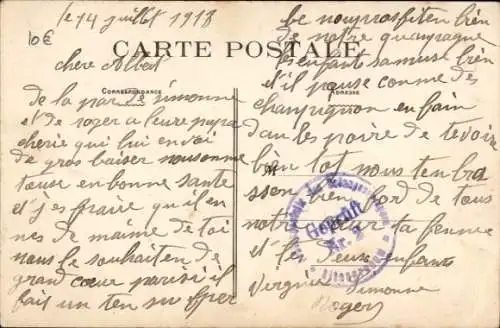 le 14 juillet 1918
10€
CARTE POSTALE
CORRESPONDANCE
ADRESSE
chere Albert
de la par de simonne
et de roger a leure
cherie qui lui envoi
de gros baiser nous somme
touse en bonne sante
et j'espaire qu'il en
nes de maime de toi
nous le souhaiten de
grand cœur par isi il
fait un ten
be nous profiten bien
de notre
les enfants samuse bien
et il pouse comme des
champignon en bain
dan les poire de te voir
bien tot nous ten bra
sson bien for de tous
notre cœur ta femme
et les deux enfants
Virginie Simonne
Roger
Geprüft
Nr. 2